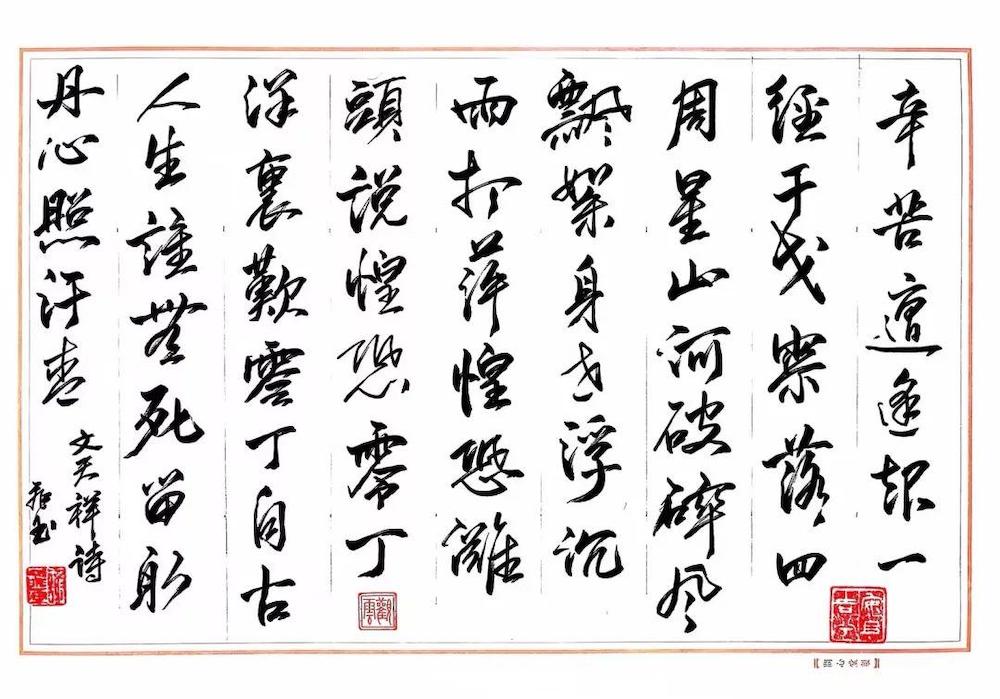 辛苦遭逢起一
經干戈寥落四
周星山河破碎风
飄絮身世浮沉
雨打萍惶恐灘
頭说惶恐零丁
洋裏歎零丁自古
人生誰無死留取
丹心照汗青
文天祥诗
觀雲